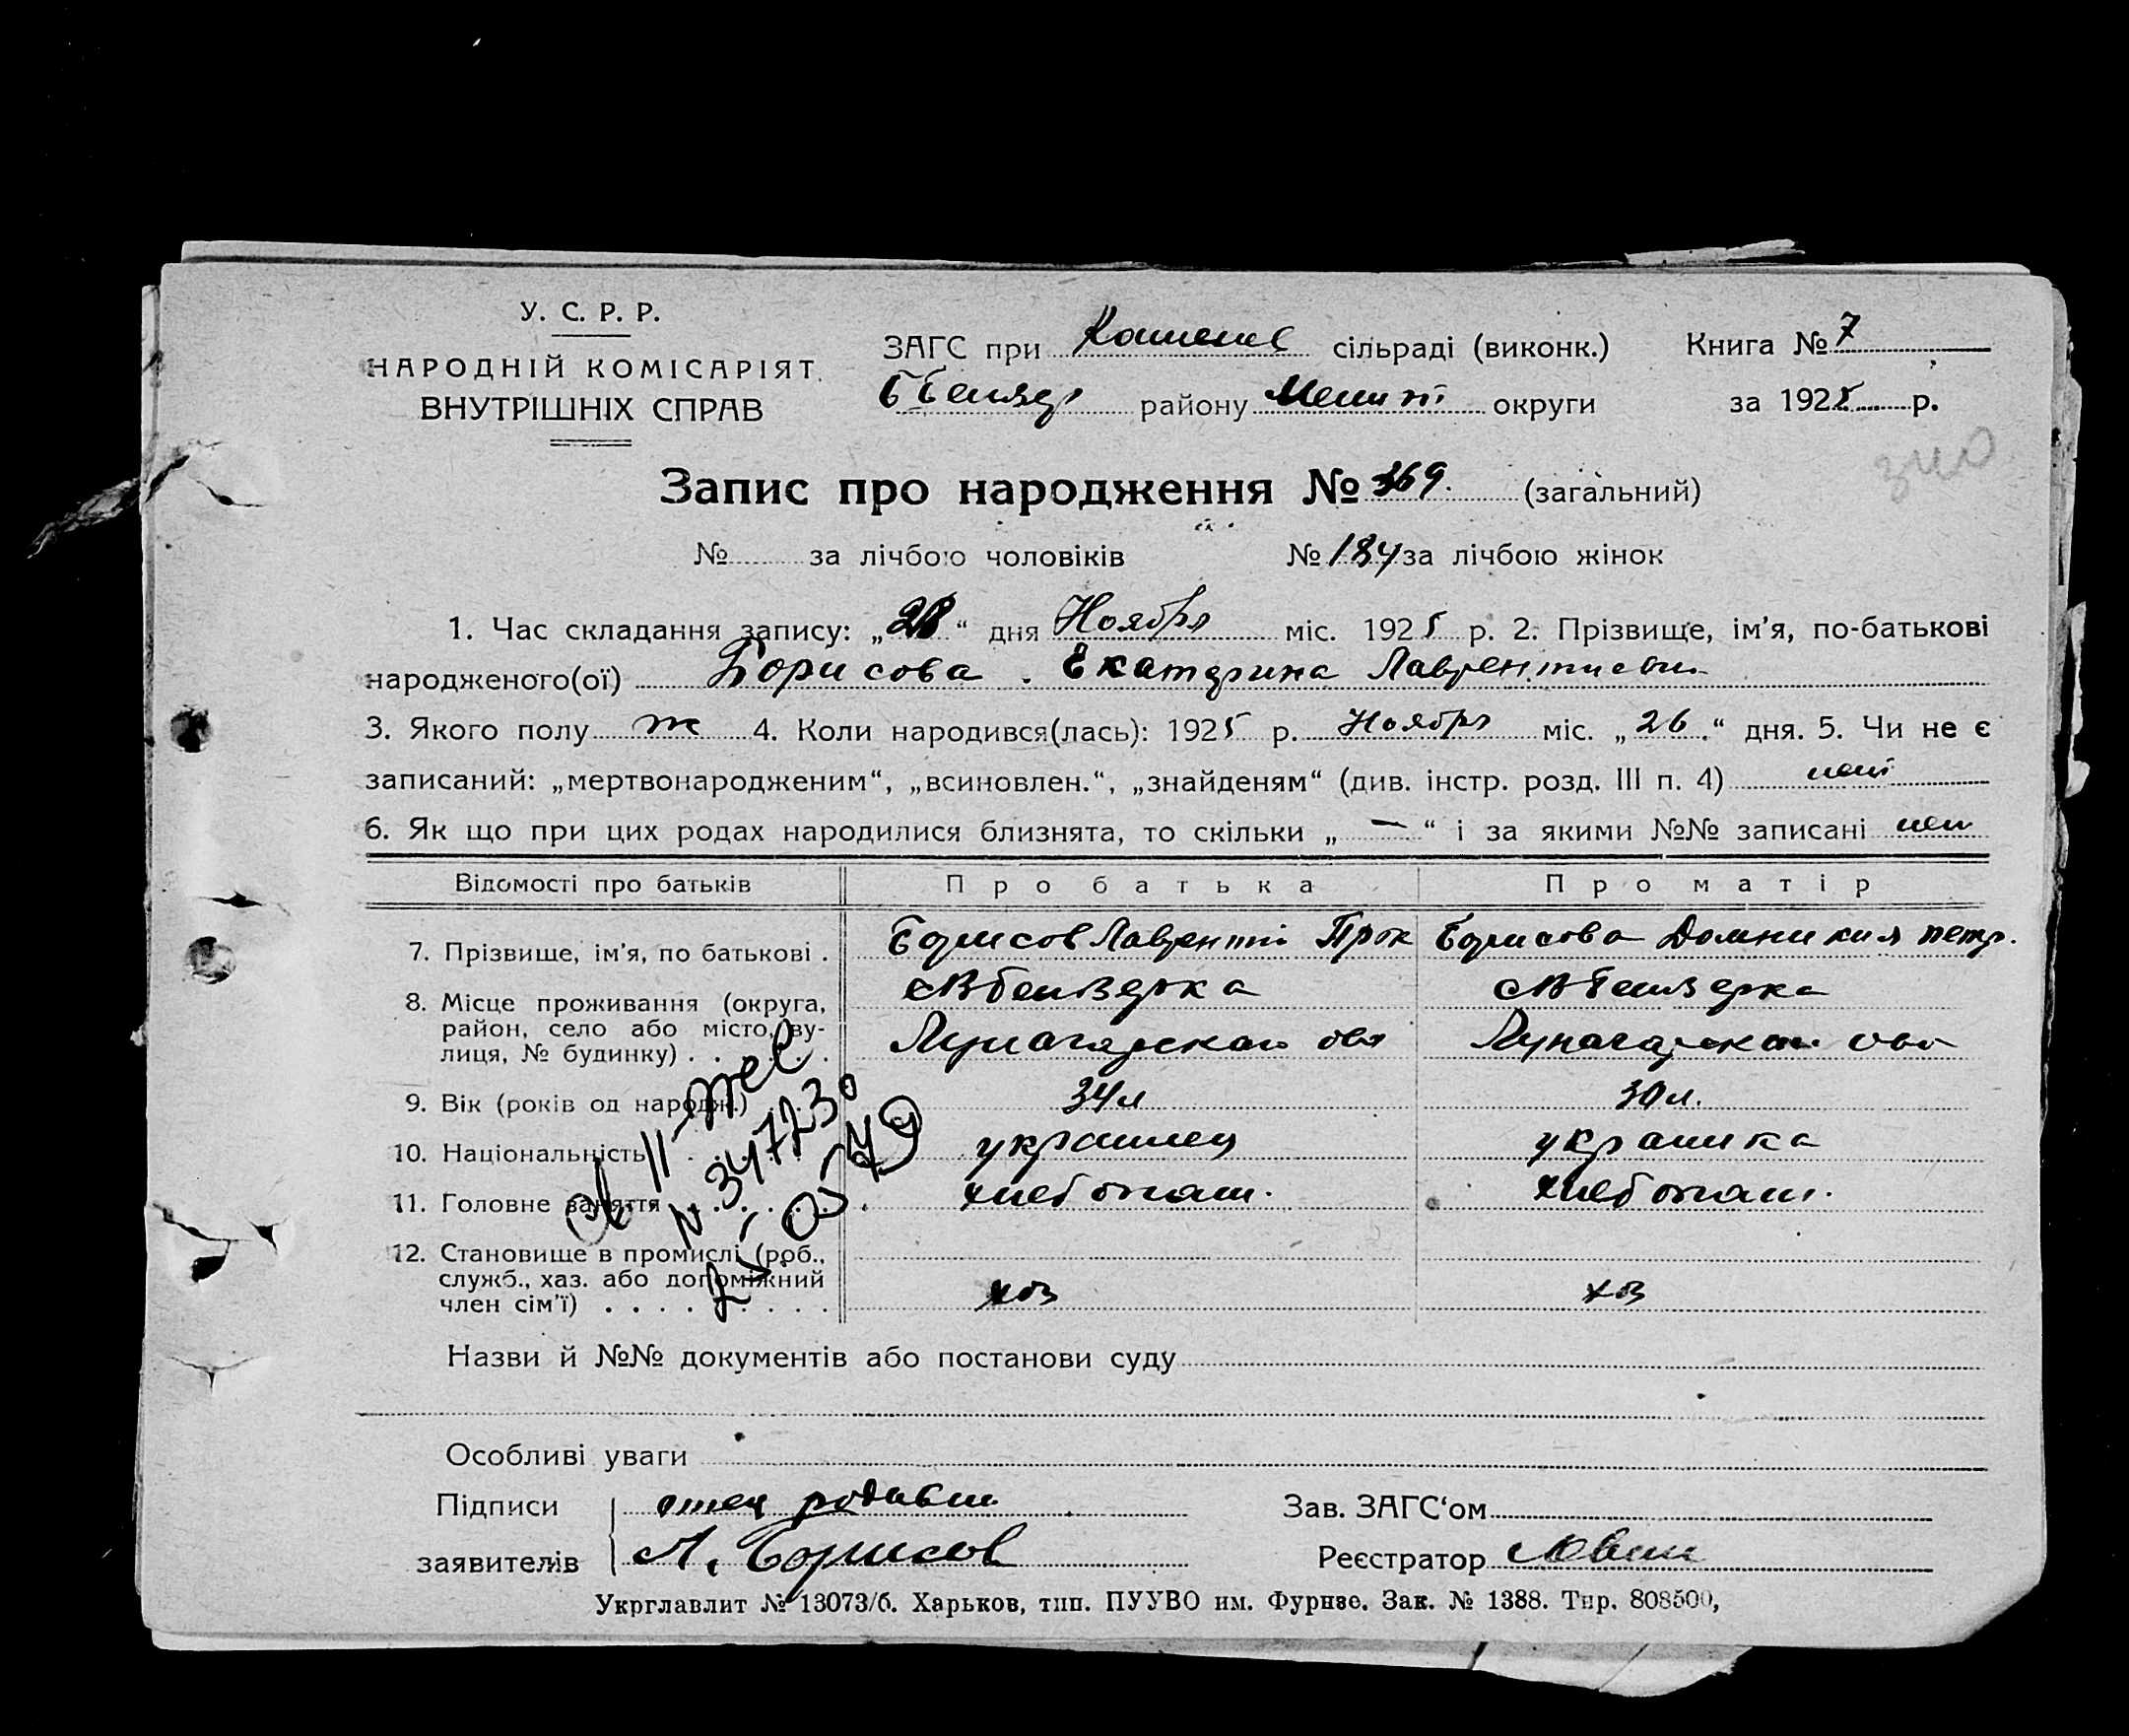 У. С. Р. Р.
НАРОДНІЙ КОМІСАРІЯТ
ВНУТРІШНІХ СПРАВ
ЗАГС при сільраді (виконк.) Книга № 7
району округи за 1925 р.
Запис про народження № 369. (загальний)
340
№ за лічбою чоловіків № 184 за лічбою жінок
1. Час складання запису: „28“ дня Ноября міс. 1925 р. 2. Прізвище, ім'я, по-батькові
народженого(ої) Борисова Екатерина
3. Якого полу ж 4. Коли народився(лась): 1925 р. Ноября міс. „26“ дня. 5. Чи не є
записаний: „мертвонародженим“, „всиновлен.“, „знайденям“ (див. інстр. розд. III п. 4) нет
6. Як що при цих родах народилися близнята, то скільки „—“ і за якими №№ записані нет
Відомості про батьків Про батька Про матір
7. Прізвище, ім'я, по батькові . Борисов Лаврентій Прок Борисова Домникия петр.
8. Місце проживання (округа,
район, село або місто, ву-
лиця, № будинку) . . . . . .
9. Вік (років од народж.) 34 л 30 л.
10. Національність украинец украинка
11. Головне заняття хлебопаш. хлебопаш.
12. Становище в промислі (роб.,
служб., хаз. або допоміжний
член сім'ї) . . . . . . . . . хоз хоз
Назви й №№ документів або постанови суду
Особливі уваги
Підписи отец
заявителів Л. Борисов
Зав. ЗАГС'ом
Реєстратор
Укрглавлит № 13073/б. Харьков, тип. ПУУВО им. Фрунзе. Зак. № 1388. Тир. 808500,